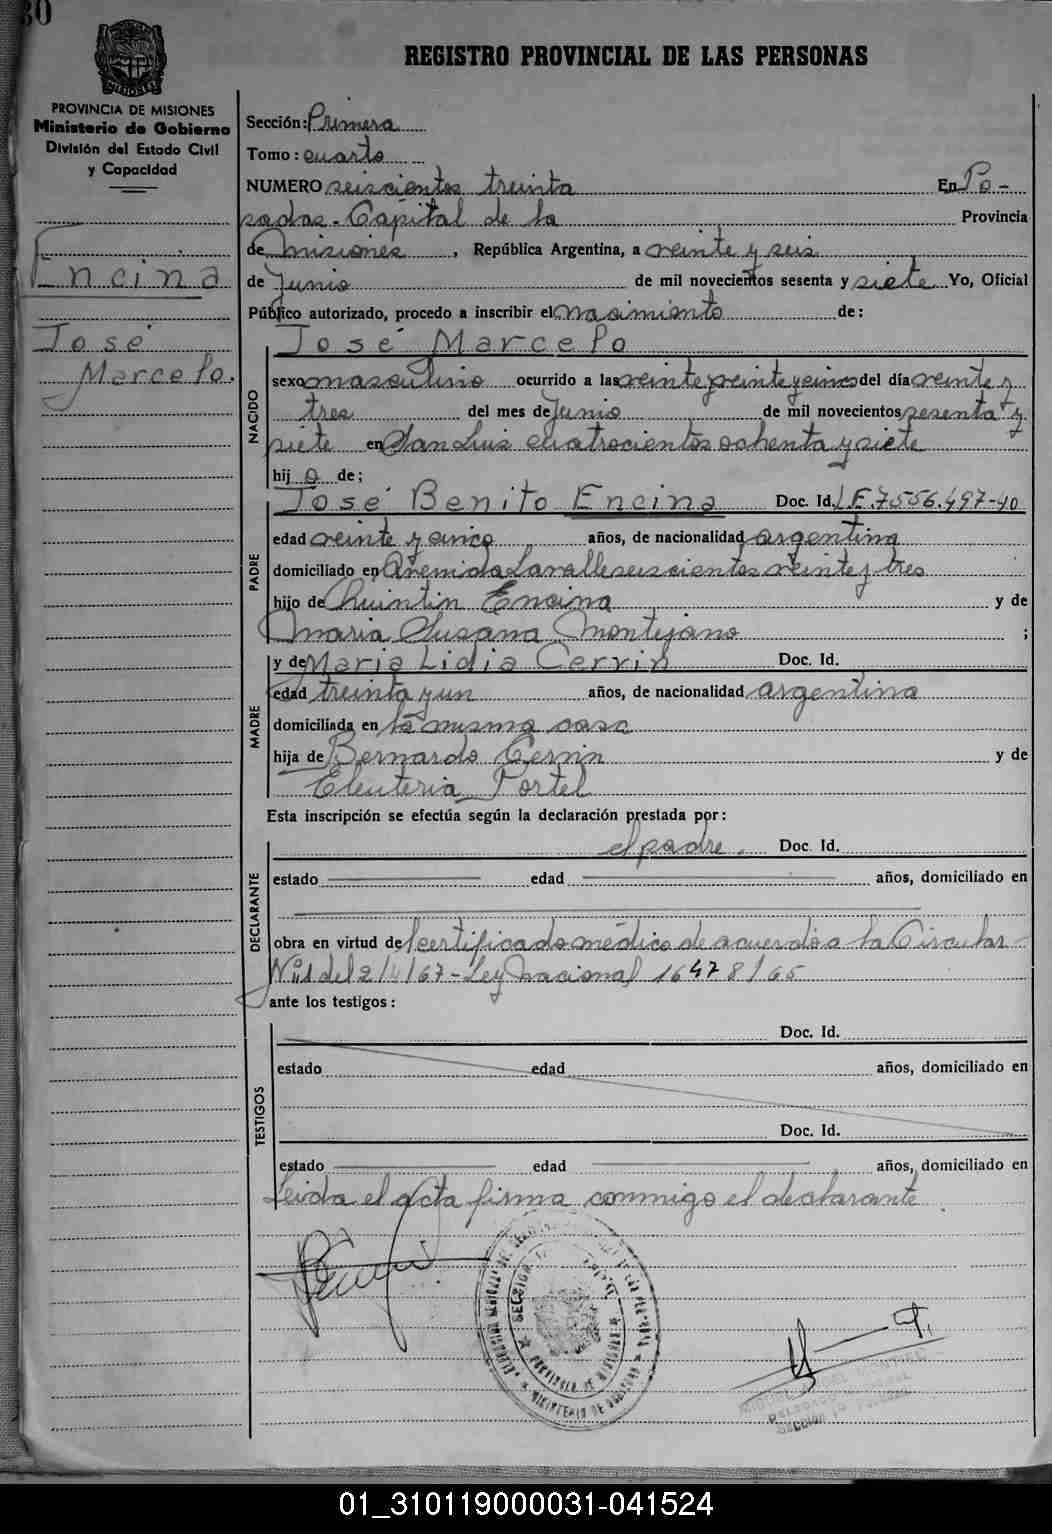 30
REGISTRO PROVINCIAL DE LAS PERSONAS
PROVINCIA DE MISIONES
Ministerio de Gobierno
División del Estado Civil
y Capacidad
Encina
José
Marcelo.
Sección: Primera
Tomo: cuarto
NUMERO seiscientos treinta En Po-
sadas - Capital de la Provincia
de Misiones, República Argentina, a veinte y seis
de Junio de mil novecientos sesenta y siete Yo, Oficial
Público autorizado, procedo a inscribir el nacimiento de:
NACIDO
José Marcelo
sexo masculino ocurrido a las veinte y veinte y cinco del día veinte y
tres del mes de Junio de mil novecientos sesenta y
siete en San Luis cuatrocientos ochenta y siete
hijo de;
PADRE
José Benito Encina Doc. Id. L.E. 7.556.497-40
edad veinte y cinco años, de nacionalidad argentina
domiciliado en Avenida Lavalle seiscientos veinte y tres
hijo de Quintin Encina y de
Maria Susana Montejano ;
MADRE
y de Maria Lidia Cervin Doc. Id.
edad treinta y un años, de nacionalidad argentina
domiciliada en la misma casa
hija de Bernardo Cervin y de
Eleuteria Portel
Esta inscripción se efectúa según la declaración prestada por:
DECLARANTE
el padre. Doc. Id.
estado edad años, domiciliado en
obra en virtud de certificado médico de acuerdo a la Circular
Nº 11 del 2/4/67 - Ley Nacional 16478/65
ante los testigos:
TESTIGOS
Doc. Id.
estado edad años, domiciliado en
Doc. Id.
estado edad años, domiciliado en
Leida el acta firma conmigo el declarante
SECCION
PROVINCIA DE MISIONES
MINISTERIO DE GOBIERNO
01_310119000031-041524